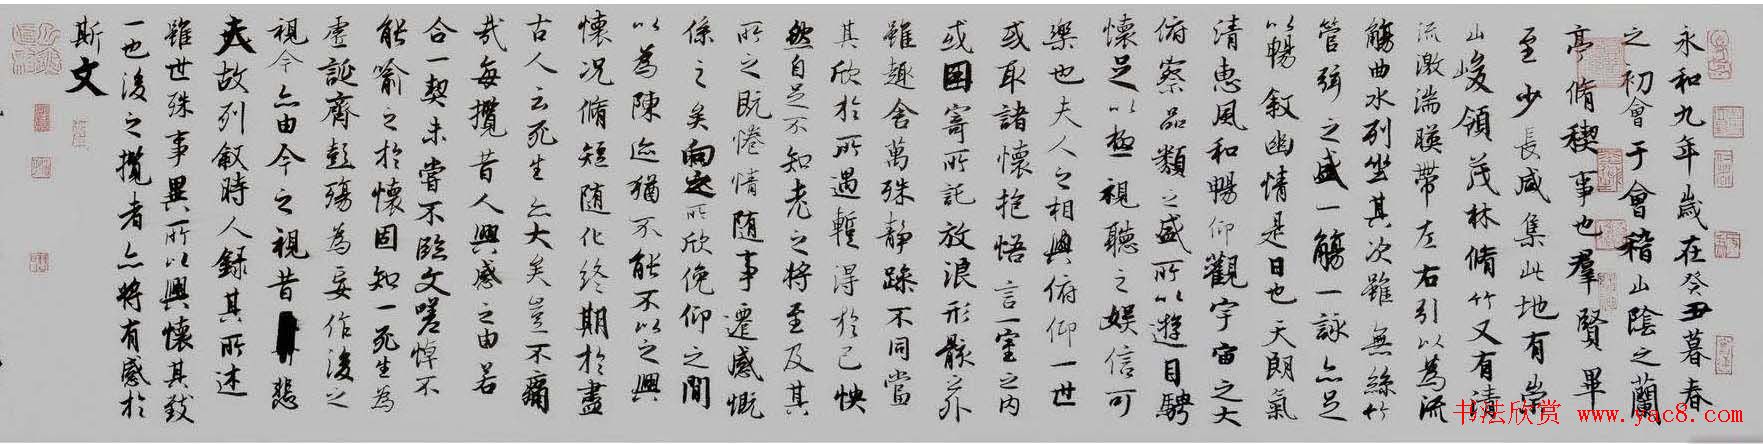 永和九年歲在癸丑暮春
之初會于會稽山陰之蘭
亭脩稧事也羣賢畢
至少長咸集此地有崇
山峻領茂林脩竹又有清
流激湍暎帶左右引以為流
觴曲水列坐其次雖無絲竹
管弦之盛一觴一詠亦足
以暢敘幽情是日也天朗氣
清惠風和暢仰觀宇宙之大
俯察品類之盛所以遊目騁
懷足以極視聽之娛信可
樂也夫人之相與俯仰一世
或取諸懷抱悟言一室之內
或因寄所託放浪形骸之外
雖趣舍萬殊靜躁不同當
其欣於所遇蹔得於己怏
然自足不知老之將至及其
所之既惓情隨事遷感慨
係之矣向之所欣俛仰之間
以為陳迹猶不能不以之興
懷况脩短隨化終期於盡
古人云死生亦大矣豈不痛
哉每攬昔人興感之由若
合一契未嘗不臨文嗟悼不
能喻之於懷固知一死生為
虛誕齊彭殤為妄作後之
視今亦由今之視昔悲
夫故列敘時人錄其所述
雖世殊事異所以興懷其致
一也後之攬者亦將有感於
斯文
书法欣赏 www.yac8.com